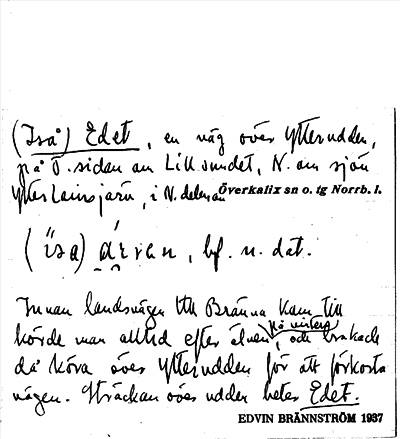 (Iså) Edet, en väg över Ytterudden,
på Ö. sidan om Lill.sundet, N. om sjön
Ytter Lainsjärv, i N. delen av Överkalix sn o. tg Norrb. l.
(isa), bf. n. dat.
Innan landsvägen till Bränna kom till
körde man alltid efter älven på vintern, och brukade
då köra över Ytterudden för att förkorta
vägen. Sträckan över udden heter Edet.
EDVIN BRÄNNSTRÖM 1937